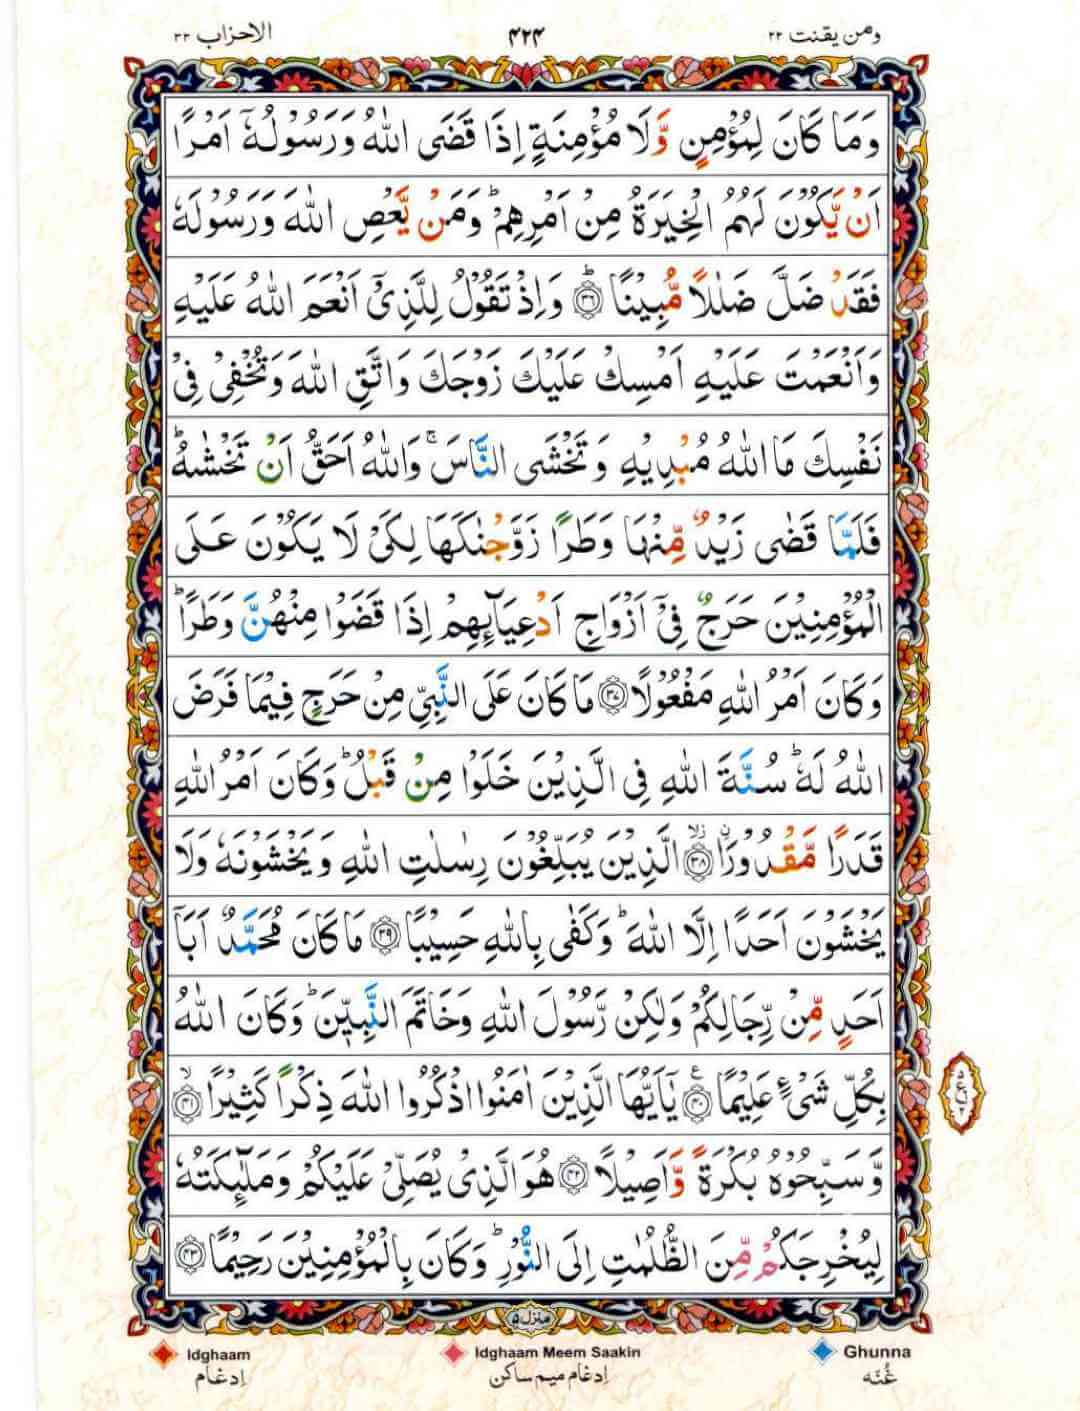 ومن یقنت ٢٢
۴۲۴
الاحزاب ٣٣
وَمَا كَانَ لِمُؤْمِنٍ وَّلَا مُؤْمِنَةٍ اِذَا قَضَى اللّٰهُ وَرَسُوْلُهٗۤ اَمْرًا
اَنْ يَّكُوْنَ لَهُمُ الْخِيَرَةُ مِنْ اَمْرِهِمْ ؕ وَمَنْ يَّعْصِ اللّٰهَ وَرَسُوْلَهٗ
فَقَدْ ضَلَّ ضَلٰلًا مُّبِيْنًا ؕ‏﴿۳۶﴾ وَاِذْ تَقُوْلُ لِلَّذِىْۤ اَنْعَمَ اللّٰهُ عَلَيْهِ
وَاَنْعَمْتَ عَلَيْهِ اَمْسِكْ عَلَيْكَ زَوْجَكَ وَاتَّقِ اللّٰهَ وَتُخْفِىْ فِىْ
نَفْسِكَ مَا اللّٰهُ مُبْدِيْهِ وَتَخْشَى النَّاسَ ۚ وَاللّٰهُ اَحَقُّ اَنْ تَخْشٰٮهُ ؕ
فَلَمَّا قَضٰى زَيْدٌ مِّنْهَا وَطَرًا زَوَّجْنٰكَهَا لِكَىْ لَا يَكُوْنَ عَلَى
الْمُؤْمِنِيْنَ حَرَجٌ فِىْۤ اَزْوَاجِ اَدْعِيَآٮِٕهِمْ اِذَا قَضَوْا مِنْهُنَّ وَطَرًا ؕ
وَكَانَ اَمْرُ اللّٰهِ مَفْعُوْلًا ﴿۳۷﴾ مَا كَانَ عَلَى النَّبِىِّ مِنْ حَرَجٍ فِيْمَا فَرَضَ
اللّٰهُ لَهٗ ؕ سُنَّةَ اللّٰهِ فِى الَّذِيْنَ خَلَوْا مِنْ قَبْلُ ؕ وَكَانَ اَمْرُ اللّٰهِ
قَدَرًا مَّقْدُوْرَا ۙ﴿۳۸﴾ الَّذِيْنَ يُبَلِّغُوْنَ رِسٰلٰتِ اللّٰهِ وَيَخْشَوْنَهٗ وَلَا
يَخْشَوْنَ اَحَدًا اِلَّا اللّٰهَ ؕ وَكَفٰى بِاللّٰهِ حَسِيْبًا ﴿۳۹﴾ مَا كَانَ مُحَمَّدٌ اَبَاۤ
اَحَدٍ مِّنْ رِّجَالِكُمْ وَلٰكِنْ رَّسُوْلَ اللّٰهِ وَخَاتَمَ النَّبِيّٖنَ ؕ وَكَانَ اللّٰهُ
بِكُلِّ شَىْءٍ عَلِيْمًا ﴿۴۰﴾ يٰۤاَيُّهَا الَّذِيْنَ اٰمَنُوا اذْكُرُوا اللّٰهَ ذِكْرًا كَثِيْرًا ۙ﴿۴۱﴾
وَّسَبِّحُوْهُ بُكْرَةً وَّاَصِيْلًا ﴿۴۲﴾ هُوَ الَّذِىْ يُصَلِّىْ عَلَيْكُمْ وَمَلٰٓٮِٕكَتُهٗ
لِيُخْرِجَكُمْ مِّنَ الظُّلُمٰتِ اِلَى النُّوْرِ ؕ وَكَانَ بِالْمُؤْمِنِيْنَ رَحِيْمًا ﴿۴۳﴾
منزل ۵
Idghaam
Idghaam Meem Saakin
Ghunna
اِدغام
اِدغام میم ساکن
غُنّه